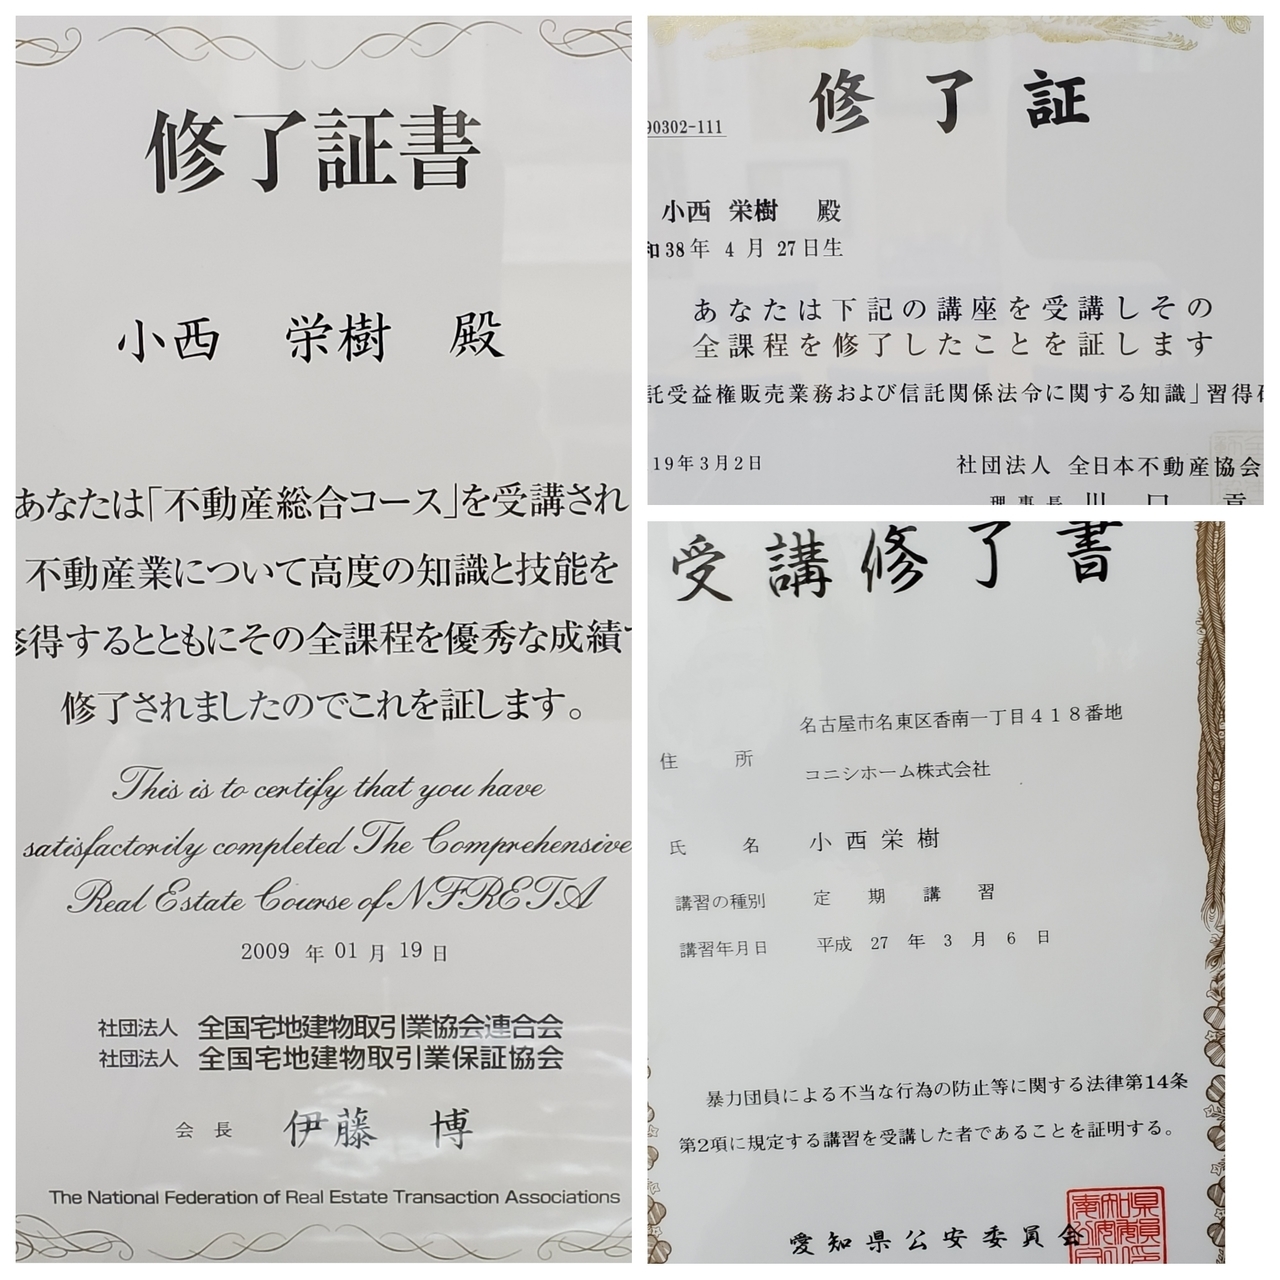 修了証書
小西 栄樹 殿
あなたは「不動産総合コース」を受講され
不動産業について高度の知識と技能を
修得するとともにその全課程を優秀な成績で
修了されましたのでこれを証します。
This is to certify that you have
satisfactorily completed The Comprehensive
Real Estate Course of NFRETA
2009 年 01 月 19 日
社団法人 全国宅地建物取引業協会連合会
社団法人 全国宅地建物取引業保証協会
会長 伊藤 博
The National Federation of Real Estate Transaction Associations
修了証
90302-111
小西 栄樹 殿
和38年 4月 27日生
あなたは下記の講座を受講しその
全課程を修了したことを証します
託受益権販売業務および信託関係法令に関する知識」習得研
19年3月2日
社団法人 全日本不動産協会
理事長 川口 貢
受講修了書
名古屋市名東区香南一丁目418番地
住所
コニシホーム株式会社
氏名 小西栄樹
講習の種別 定期講習
講習年月日 平成 27 年 3 月 6 日
暴力団員による不当な行為の防止等に関する法律第14条
第2項に規定する講習を受講した者であることを証明する。
愛知県公安委員会